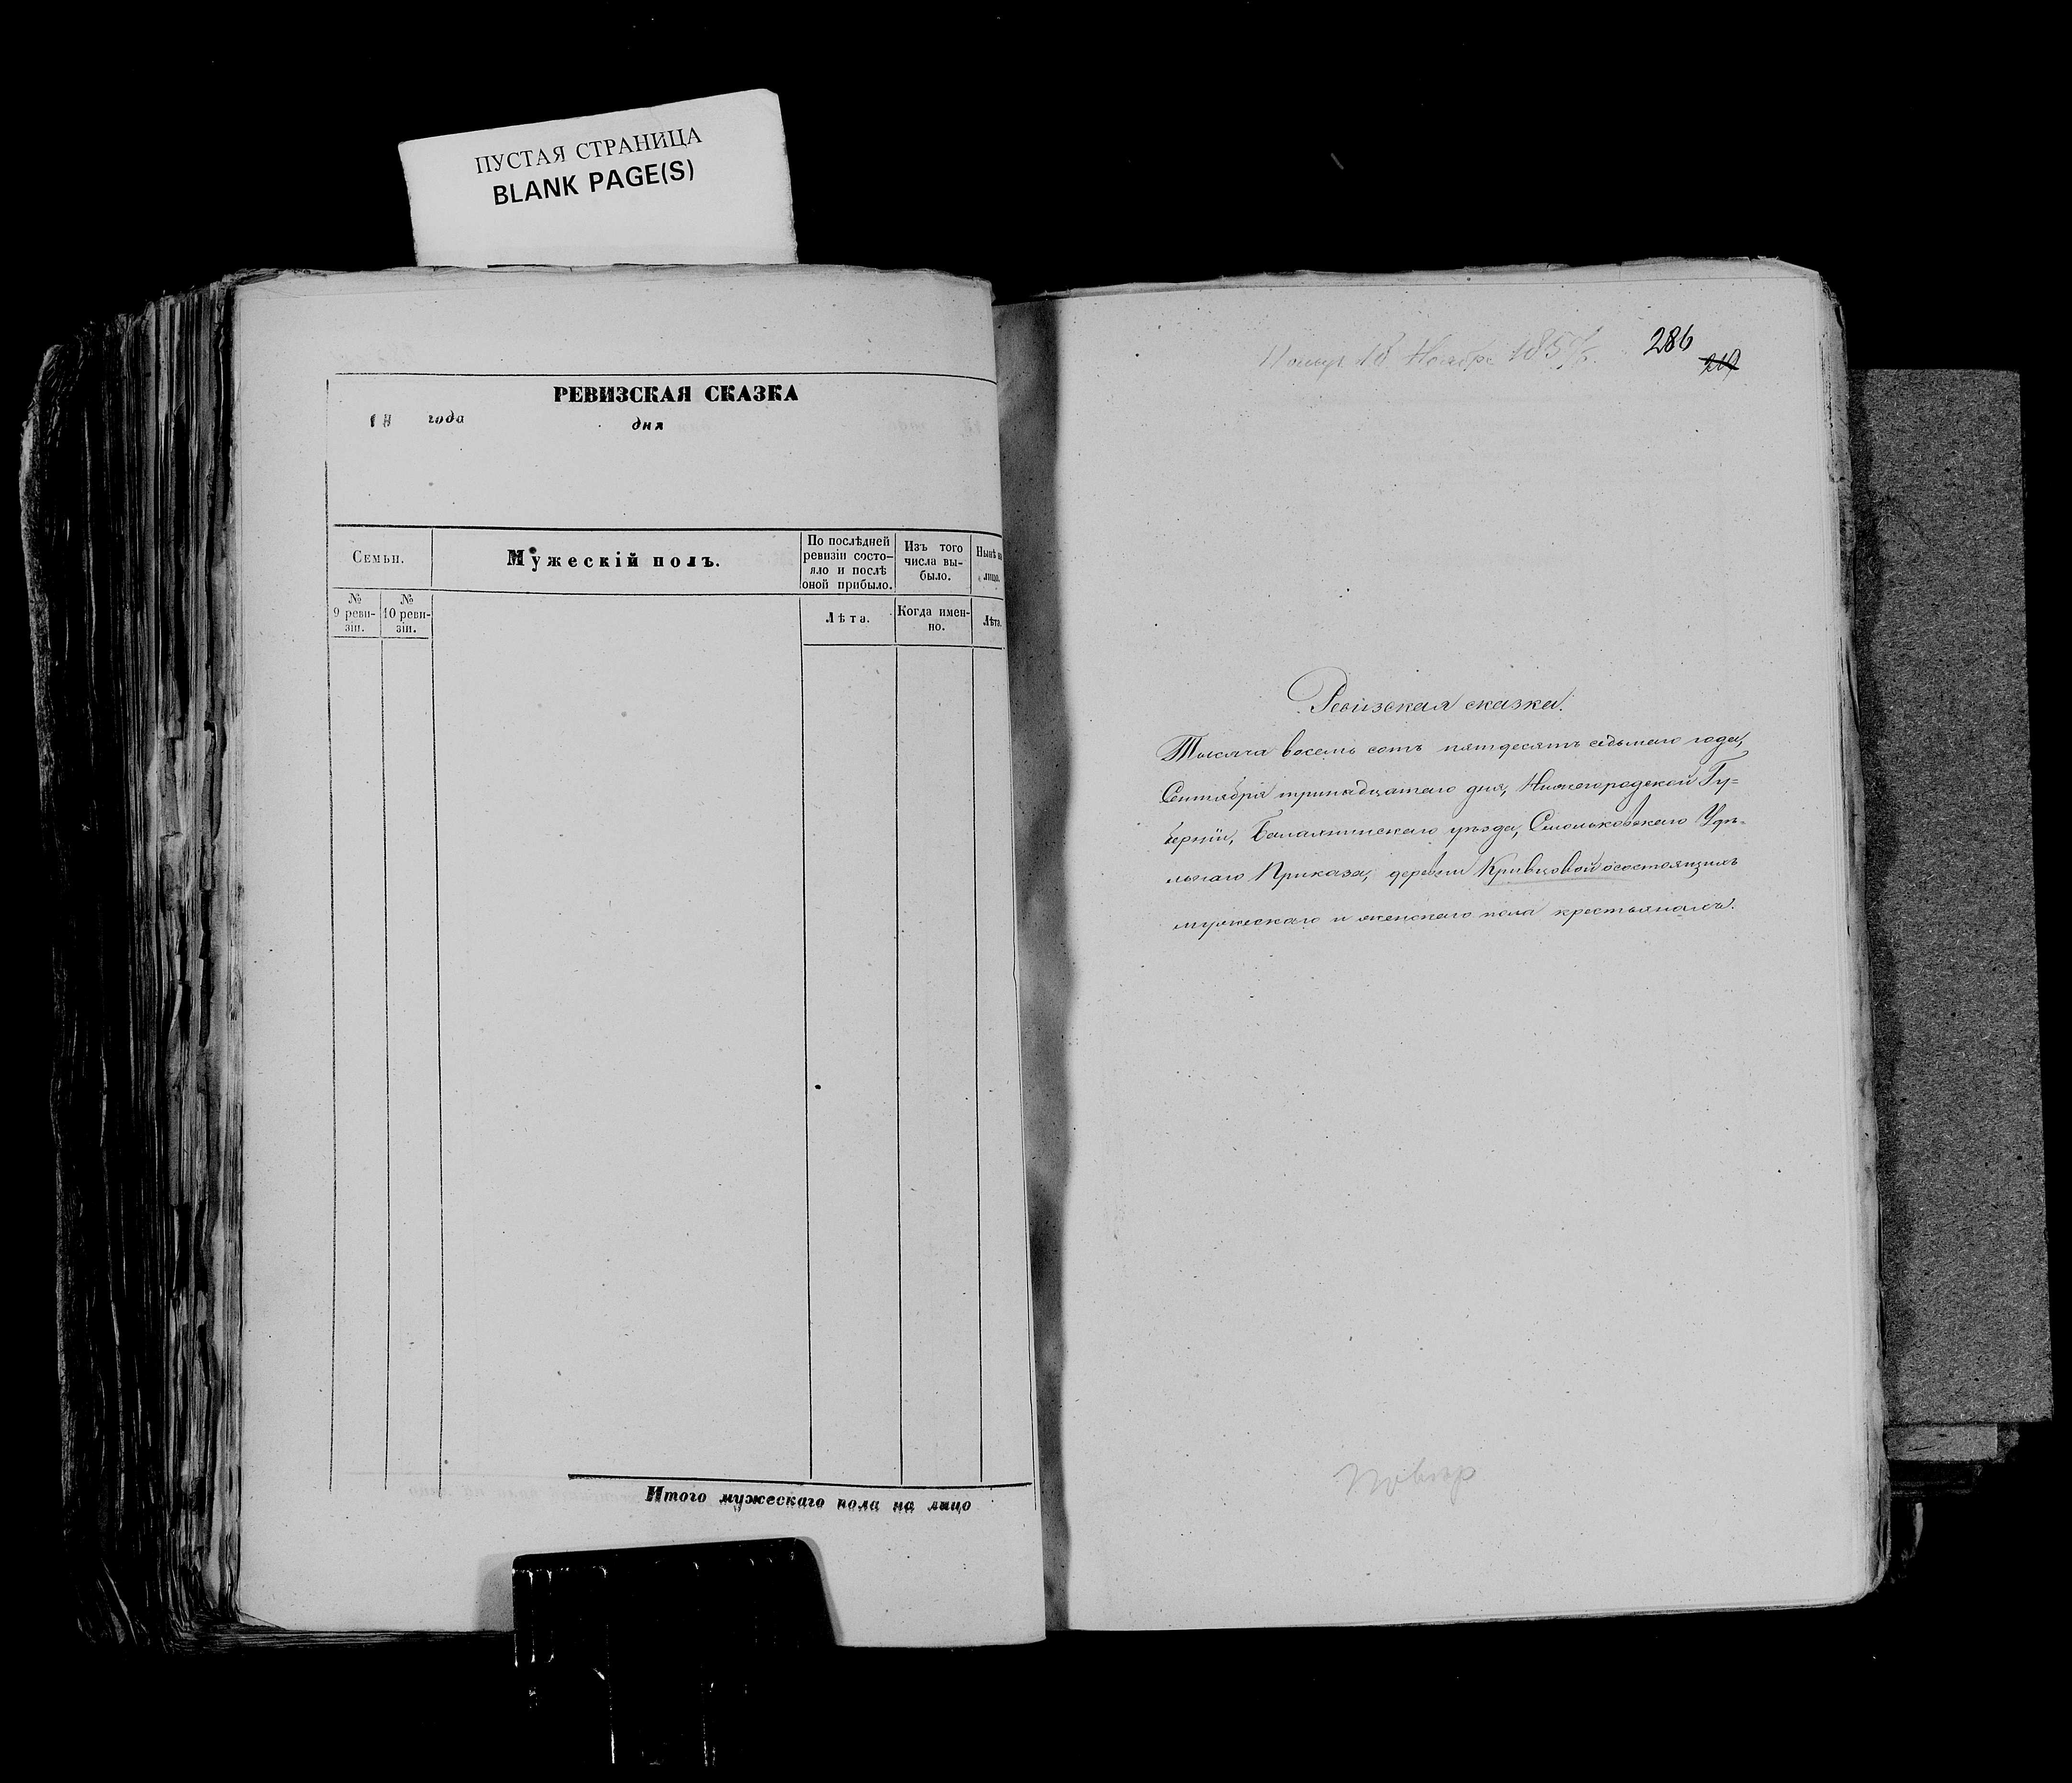 ПУСТАЯ СТРАНИЦА
BLANK PAGE(S)
РЕВИЗСКАЯ СКАЗКА
18 года дня
Семьи.
Мужескій полъ.
По послѣдней
ревизіи состо-
яло и послѣ
оной прибыло.
Изъ того
числа вы-
было.
Нынѣ на
лицо.
№
9 реви-
зіи.
№
10 реви-
зіи.
Лѣта.
Когда имен-
но.
Лѣта.
Итого мужескаго пола на лицо
18 Ноября 1857 г.
286
Ревизская сказка.
Тысяча восемь сотъ пятдесятъ седьмаго года,
Сентября тринадцатаго дня, Нижегородской Гу=
берніи, Балахнинскаго уѣзда, Смольковскаго Удѣ=
льнаго Приказа, деревни Кривцовой о состоящихъ
мужескаго и женскаго пола крестьянахъ.